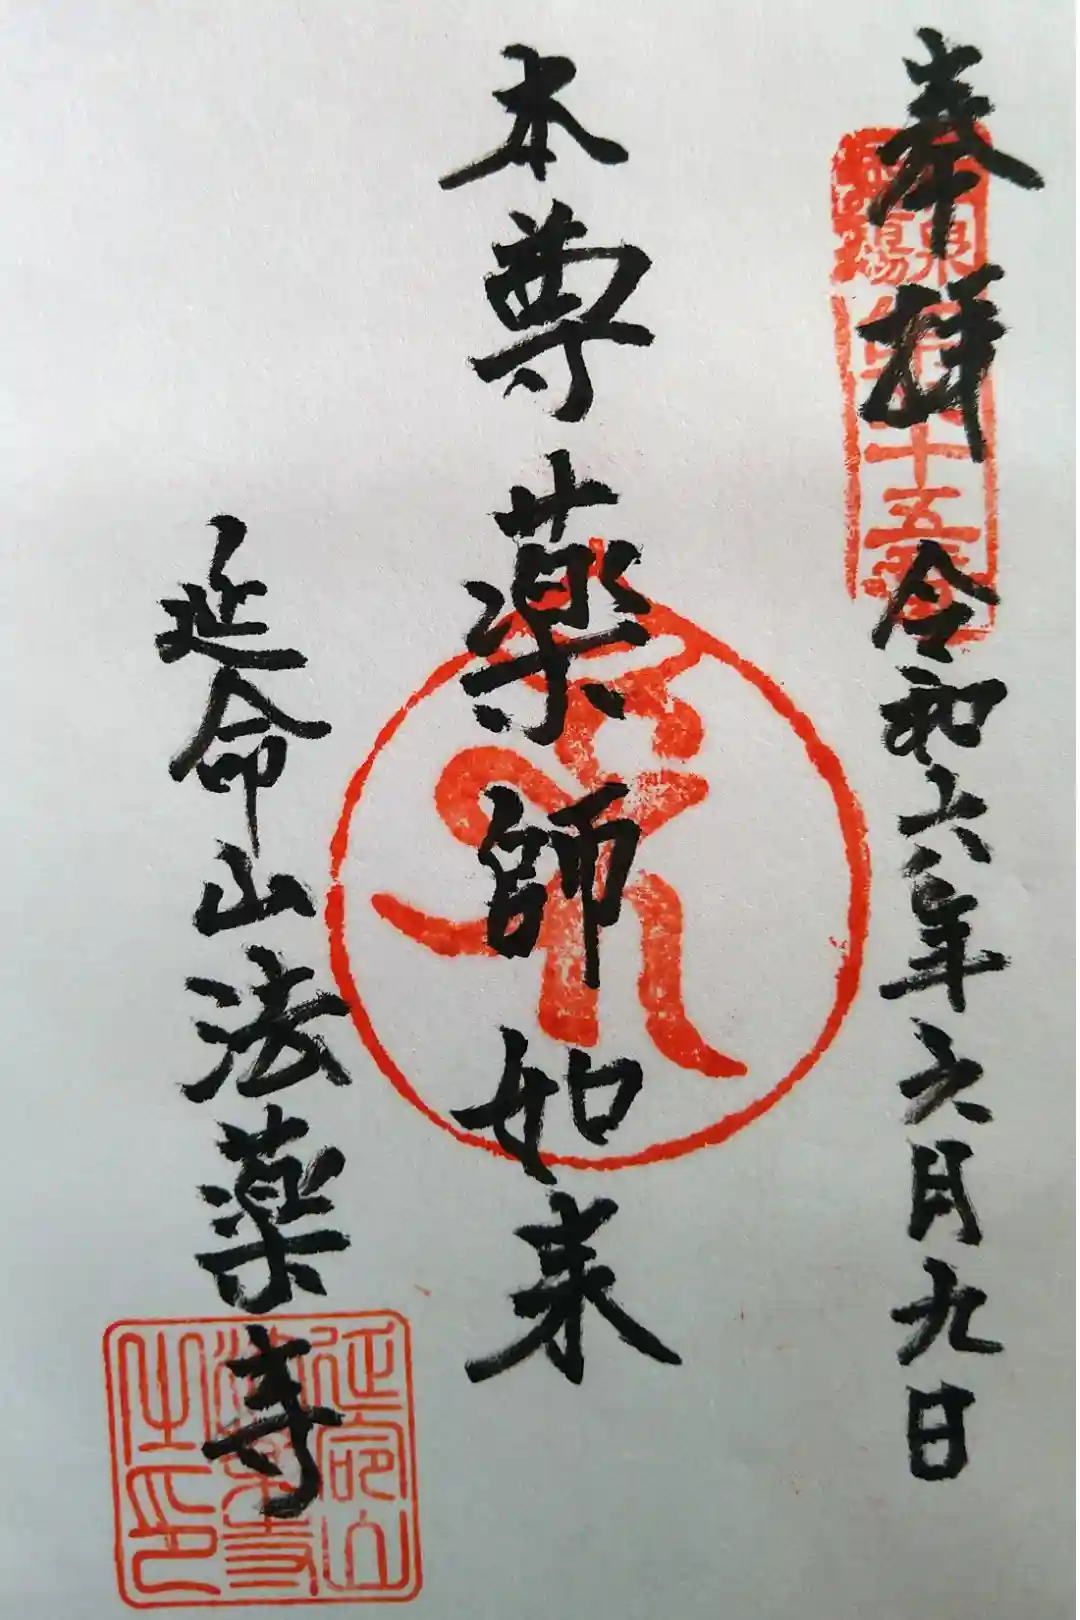 奉拝 令和六年六月九日
本尊薬師如来
延命山法薬寺
十五番
延命山
法薬寺
之印